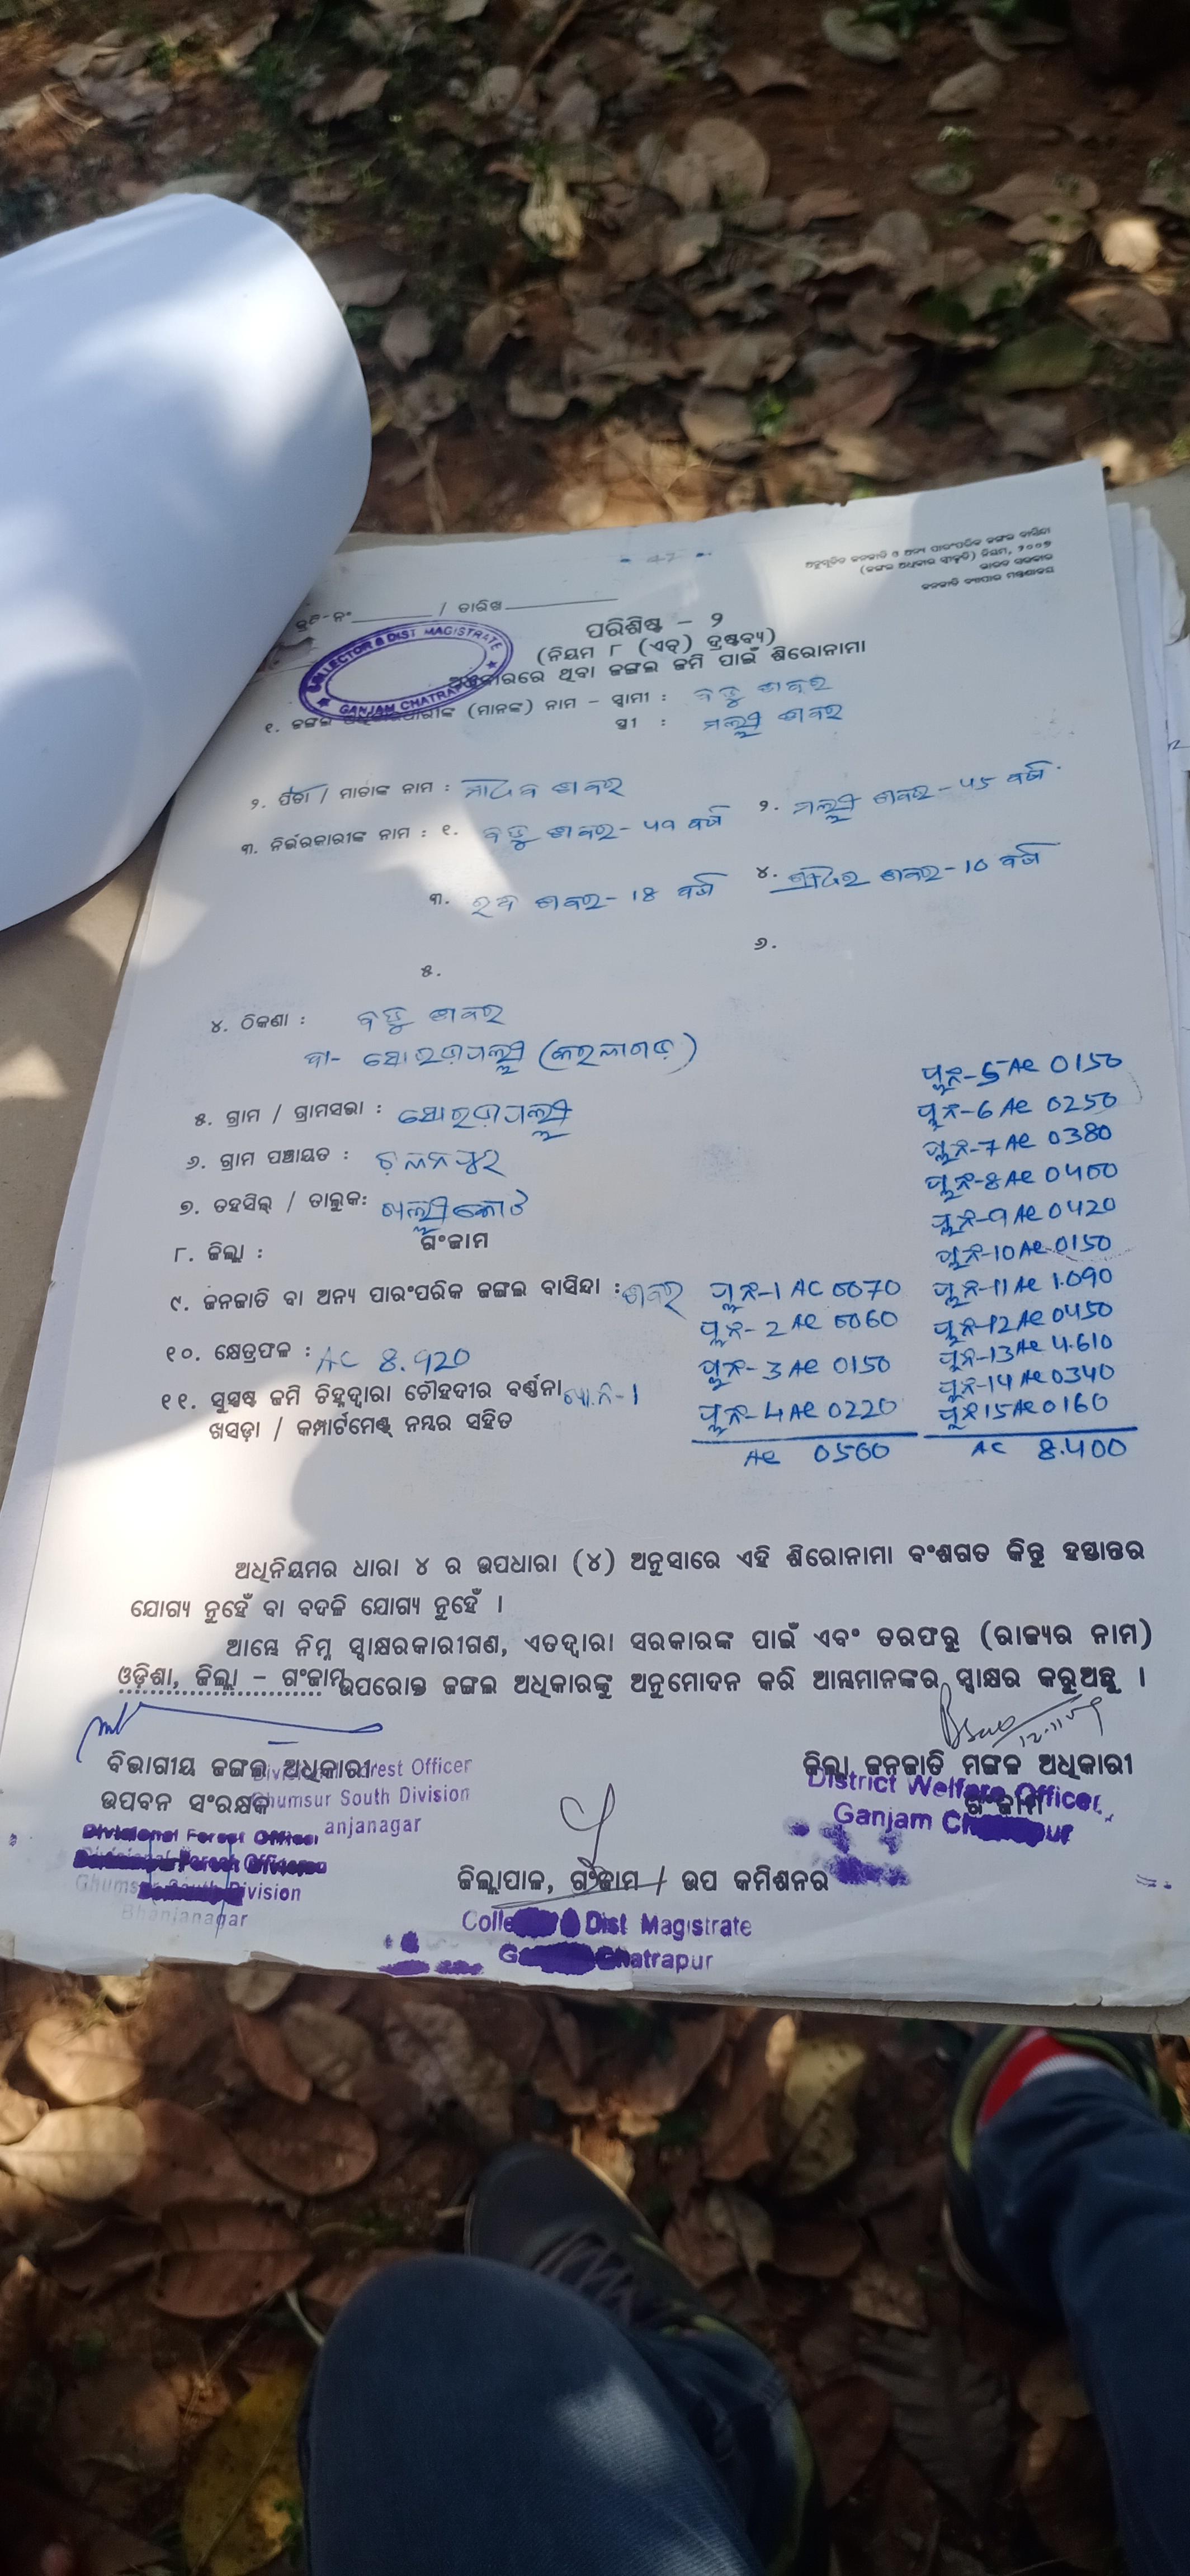 - 47 -
ଅନୁସୂଚିତ ଜନଜାତି ଓ ଅନ୍ୟ ପାରଂପରିକ ଜଙ୍ଗଲ ବାସିନ୍ଦା
(ଜଙ୍ଗଲ ଅଧିକାର ସ୍ୱୀକୃତି) ନିୟମ, ୨୦୦୭
ଭାରତ ସରକାର
ଜନଜାତି ବ୍ୟାପାର ମନ୍ତ୍ରଣାଳୟ
/ ତାରିଖ
COLLECTOR & DIST MAGISTRATE
GANJAM CHATRAPUR
ପରିଶିଷ୍ଟ - ୨
(ନିୟମ ୮ (ଏଚ୍) ଦ୍ରଷ୍ଟବ୍ୟ)
ଅଧିକାରରେ ଥିବା ଜଙ୍ଗଲ ଜମି ପାଇଁ ଶିରୋନାମା
୧. ଜଙ୍ଗଲ (ମାନଙ୍କ) ନାମ - ସ୍ୱାମୀ : ବଡୁ ଶବର
ସ୍ତ୍ରୀ : ମଲ୍ଲୀ ଶବର
୨. ପିତା / ମାତାଙ୍କ ନାମ : ଶବର
୩. ନିର୍ଭରକାରୀଙ୍କ ନାମ : ୧. ବଡୁ ଶବର- ବର୍ଷ ୨. ମଲ୍ଲୀ ଶବର- ୪5 ବର୍ଷ
୩. ଶବର- 18 ବର୍ଷ ୪. ଶବର- 10 ବର୍ଷ
୫. ୬.
୪. ଠିକଣା : ବଡୁ ଶବର
ସୋରଡ଼ାପଲ୍ଲୀ
୫. ଗ୍ରାମ / ଗ୍ରାମସଭା : ସୋରଡ଼ାପଲ୍ଲୀ
୬. ଗ୍ରାମ ପଞ୍ଚାୟତ :
୭. ତହସିଲ୍ / ତାଲୁକ: ଖଲ୍ଲୀକୋଟ
୮. ଜିଲ୍ଲା : ଗଂଜାମ
୯. ଜନଜାତି ବା ଅନ୍ୟ ପାରଂପରିକ ଜଙ୍ଗଲ ବାସିନ୍ଦା : ଶବର
୧୦. କ୍ଷେତ୍ରଫଳ : AC 8.920
୧୧. ସୁସ୍ପଷ୍ଟ ଜମି ଚିହ୍ନଦ୍ୱାରା ଚୌହଦୀର ବର୍ଣ୍ଣନା
ଖସଡ଼ା / କମ୍ପାର୍ଟମେଣ୍ଟ ନମ୍ବର ସହିତ
ପ୍ଲଟ-1 AC 0070
ପ୍ଲଟ-2 AC 0060
ପ୍ଲଟ-3 AC 0150
ପ୍ଲଟ-4 AC 0220
AC 0500
ପ୍ଲଟ-5 AC 0150
ପ୍ଲଟ-6 AC 0250
ପ୍ଲଟ-7 AC 0380
ପ୍ଲଟ-8 AC 0400
ପ୍ଲଟ-9 AC 0420
ପ୍ଲଟ-10 AC 0150
ପ୍ଲଟ-11 AC 1.090
ପ୍ଲଟ-12 AC 0450
ପ୍ଲଟ-13 AC 4.610
ପ୍ଲଟ-14 AC 0340
ପ୍ଲଟ 15 AC 0160
AC 8.400
ଅଧିନିୟମର ଧାରା ୪ ର ଉପଧାରା (୪) ଅନୁସାରେ ଏହି ଶିରୋନାମା ବଂଶଗତ କିନ୍ତୁ ହସ୍ତାନ୍ତର
ଯୋଗ୍ୟ ନୁହେଁ ବା ବଦଳି ଯୋଗ୍ୟ ନୁହେଁ ।
ଆମ୍ଭେ ନିମ୍ନ ସ୍ୱାକ୍ଷରକାରୀଗଣ, ଏତଦ୍ୱାରା ସରକାରଙ୍କ ପାଇଁ ଏବଂ ତରଫରୁ (ରାଜ୍ୟର ନାମ)
ଓଡ଼ିଶା, ଜିଲ୍ଲା - ଗଂଜାମ ଉପରୋକ୍ତ ଜଙ୍ଗଲ ଅଧିକାରଙ୍କୁ ଅନୁମୋଦନ କରି ଆମ୍ଭମାନଙ୍କର ସ୍ୱାକ୍ଷର କରୁଅଛୁ ।
ବିଭାଗୀୟ ଜଙ୍ଗଲ ଅଧିକାରୀ
ଉପବନ ସଂରକ୍ଷକ
Divisional Forest Officer
Ghumsur South Division
Bhanjanagar
Divisional Forest Officer
Ghumsur South Division
Bhanjanagar
ଜିଲ୍ଲାପାଳ, ଗଂଜାମ / ଉପ କମିଶନର
Collector & Dist Magistrate
Ganjam Chatrapur
ଜିଲ୍ଲା ଜନଜାତି ମଙ୍ଗଳ ଅଧିକାରୀ
ଗଂଜାମ
District Welfare Officer
Ganjam